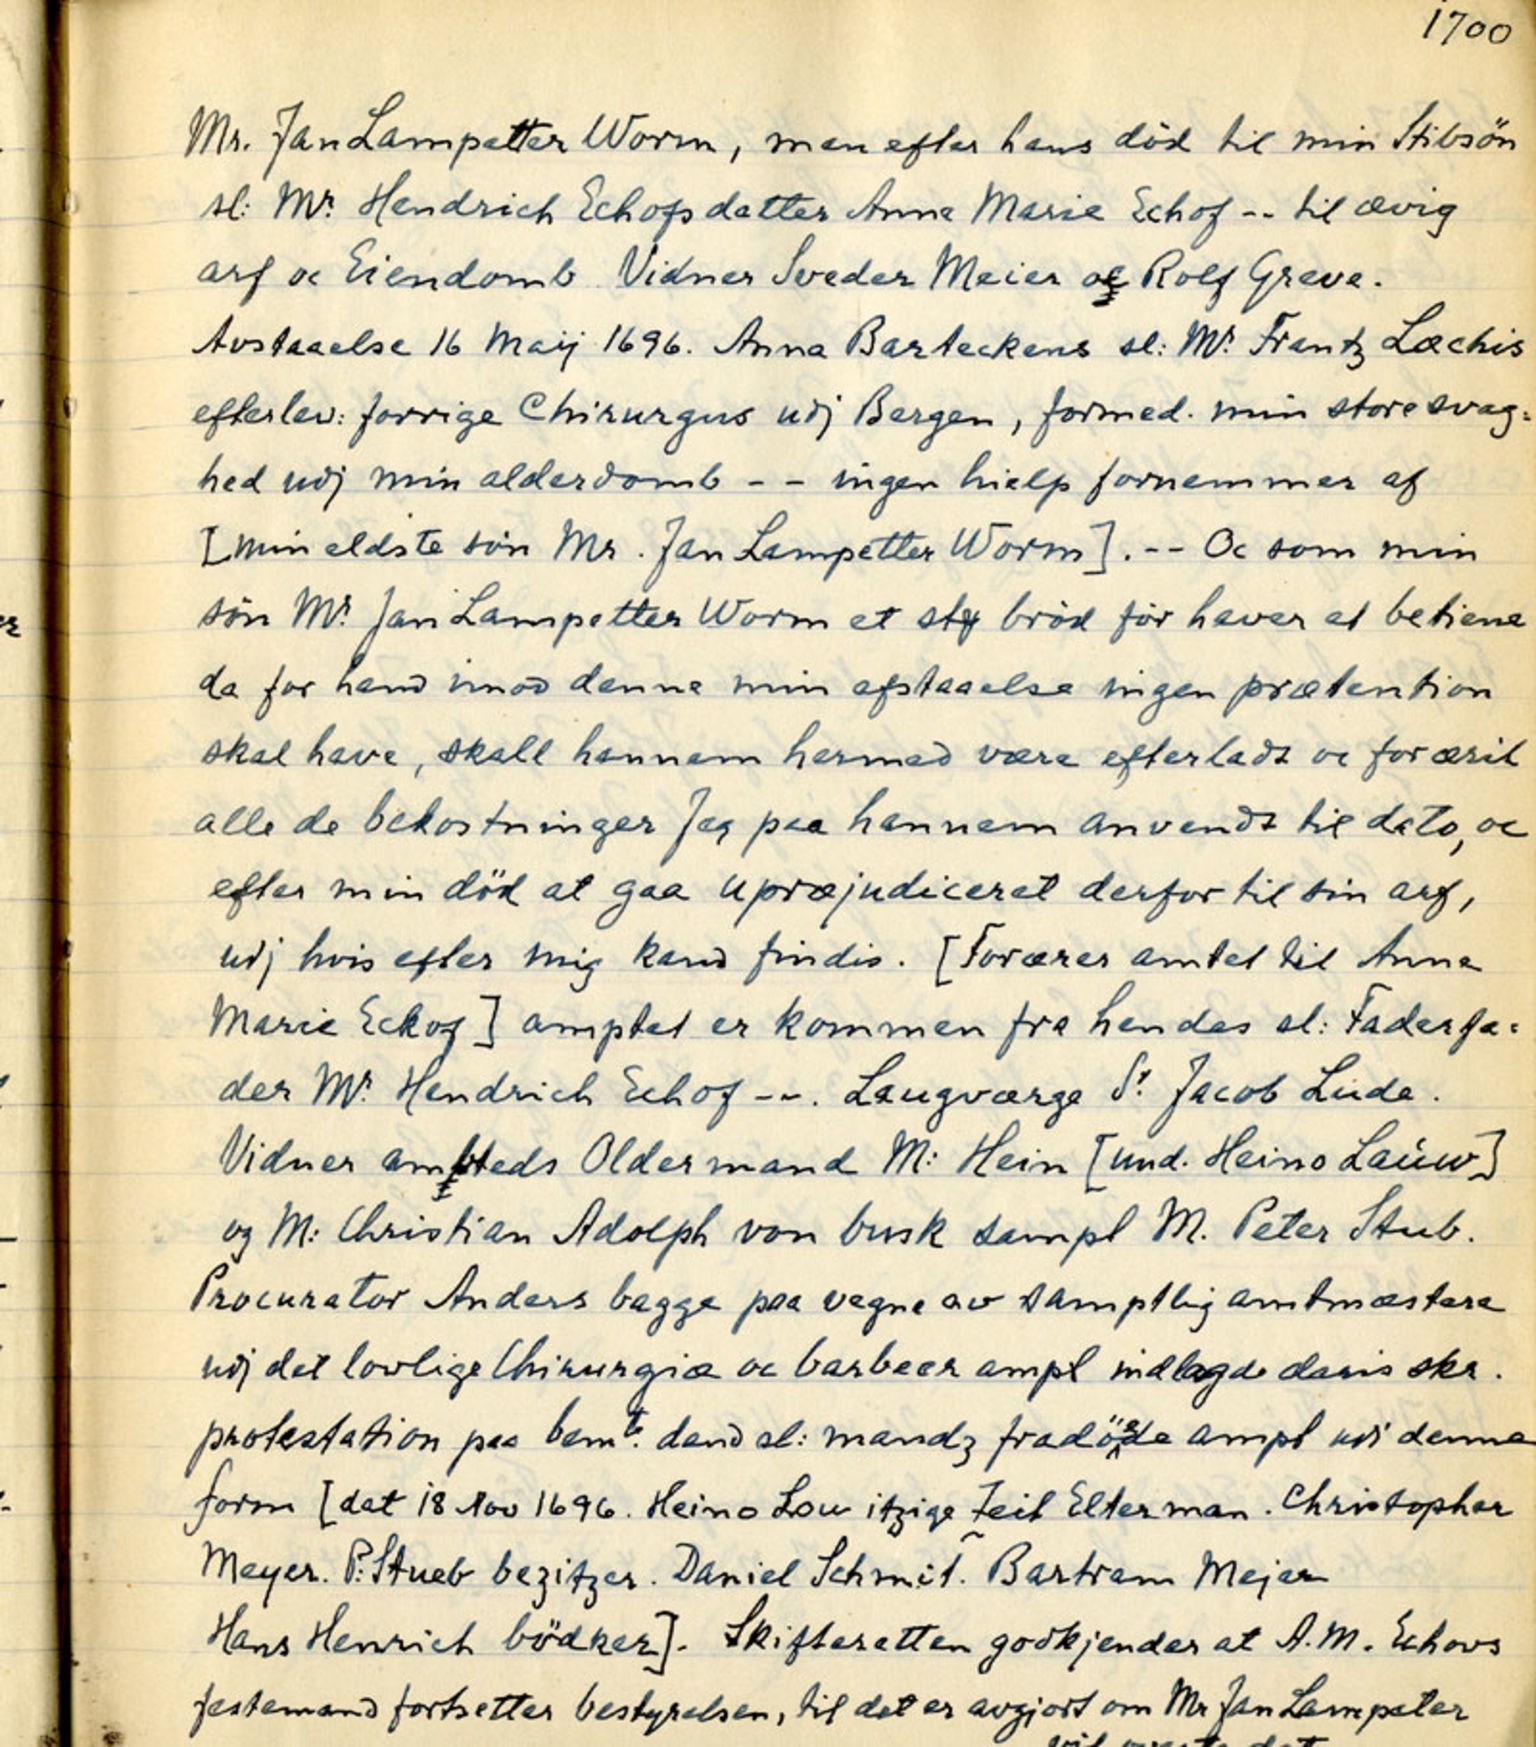 1700
Mr. Jan Lampetter Worm, men efter hans död til min Stibsön
sl: Mr. Hendrich Echofs datter Anna Marie Echof -- til ævig
arf oc Eiendomb Vidner Sveder Meier oc Rolf Greve.
Avstaaelse 16 Maij 1696. Anna Barteckens sl: Mr. Frantz Læchis
efterlev: forrige Chirurgus udj Bergen, formed. min store svag=
hed udj min alderdomb -- ingen hielp fornemmer af
[min eldste sön Mr. Jan Lampetter Worm]. -- Oc som min
sön Mr. Jan Lampetter Worm et sty bröd för haver at betiene
da for hand imod denne min afstaaelse ingen prætention
skal have, skall hannem hermed være efterladt oc foræril
alle de bekostninger Jeg paa hannem anvendt til dato, oc
efter min död at gaa upræjudiceret derfor til sin arf,
udj hvis efter mig kand findis. [Forærer amtet til Anna
Marie Eckof] amptet er kommen fra hendes sl: Faderfa=
der Mr. Hendrich Echof --. Laugværge Sr. Jacob Lude.
Vidner ampteds Oldermand M: Hein [und. Heino Laüw]
og M: Christian Adolph von busk sampt M. Peter Stub.
Procurator Anders bagge paa vegne av samptlig amtmæstere
udj det lovlige Chirurgiæ oc barbeer ampt indlagde deris skr.
protestation paa bemt. dend sl: mandz fradöede ampt udi denne
form [dat 18 Nov 1696. Heino Lou itzige Zeit Elterman. Christopher
Meyer. P: Stueb bezitzer. Daniel Schmit. Bartram Mejer
Hans Henrich bödker]. Skifteretten godkjender at A.M. Echovs
festemand fortsetter bestyrelsen, til det er avgjort om Mr Jan Lampeter